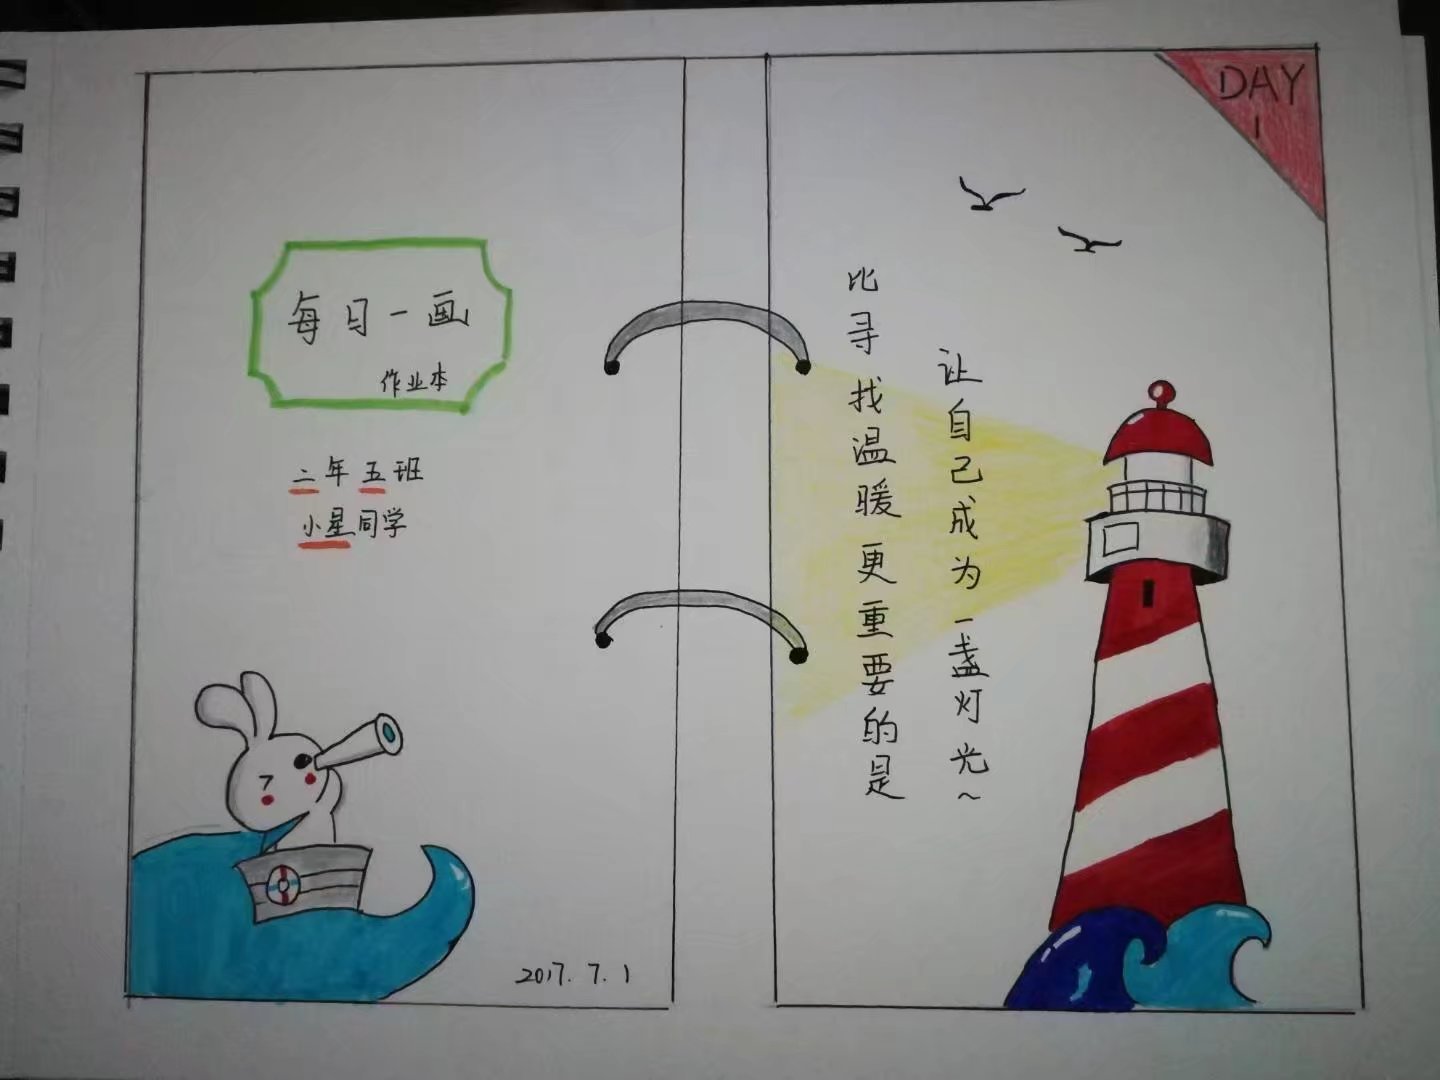 每日一画
作业本
二年五班
小星同学
2017.7.1
DAY
1
比寻找温暖更重要的是
让自己成为一盏灯光~